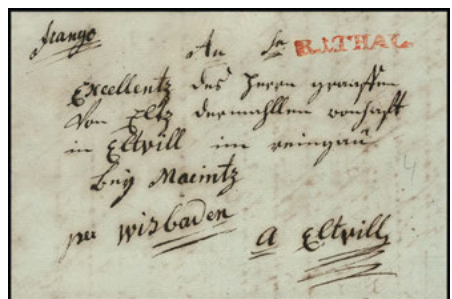 frango
An Sr R.LTHAL.
Excellentz des Herrn graaffen
Von Eltz dermahllen wonhafft
in Eltvill im reingau
beÿ Maintz
per Wisbaden
a Eltvill